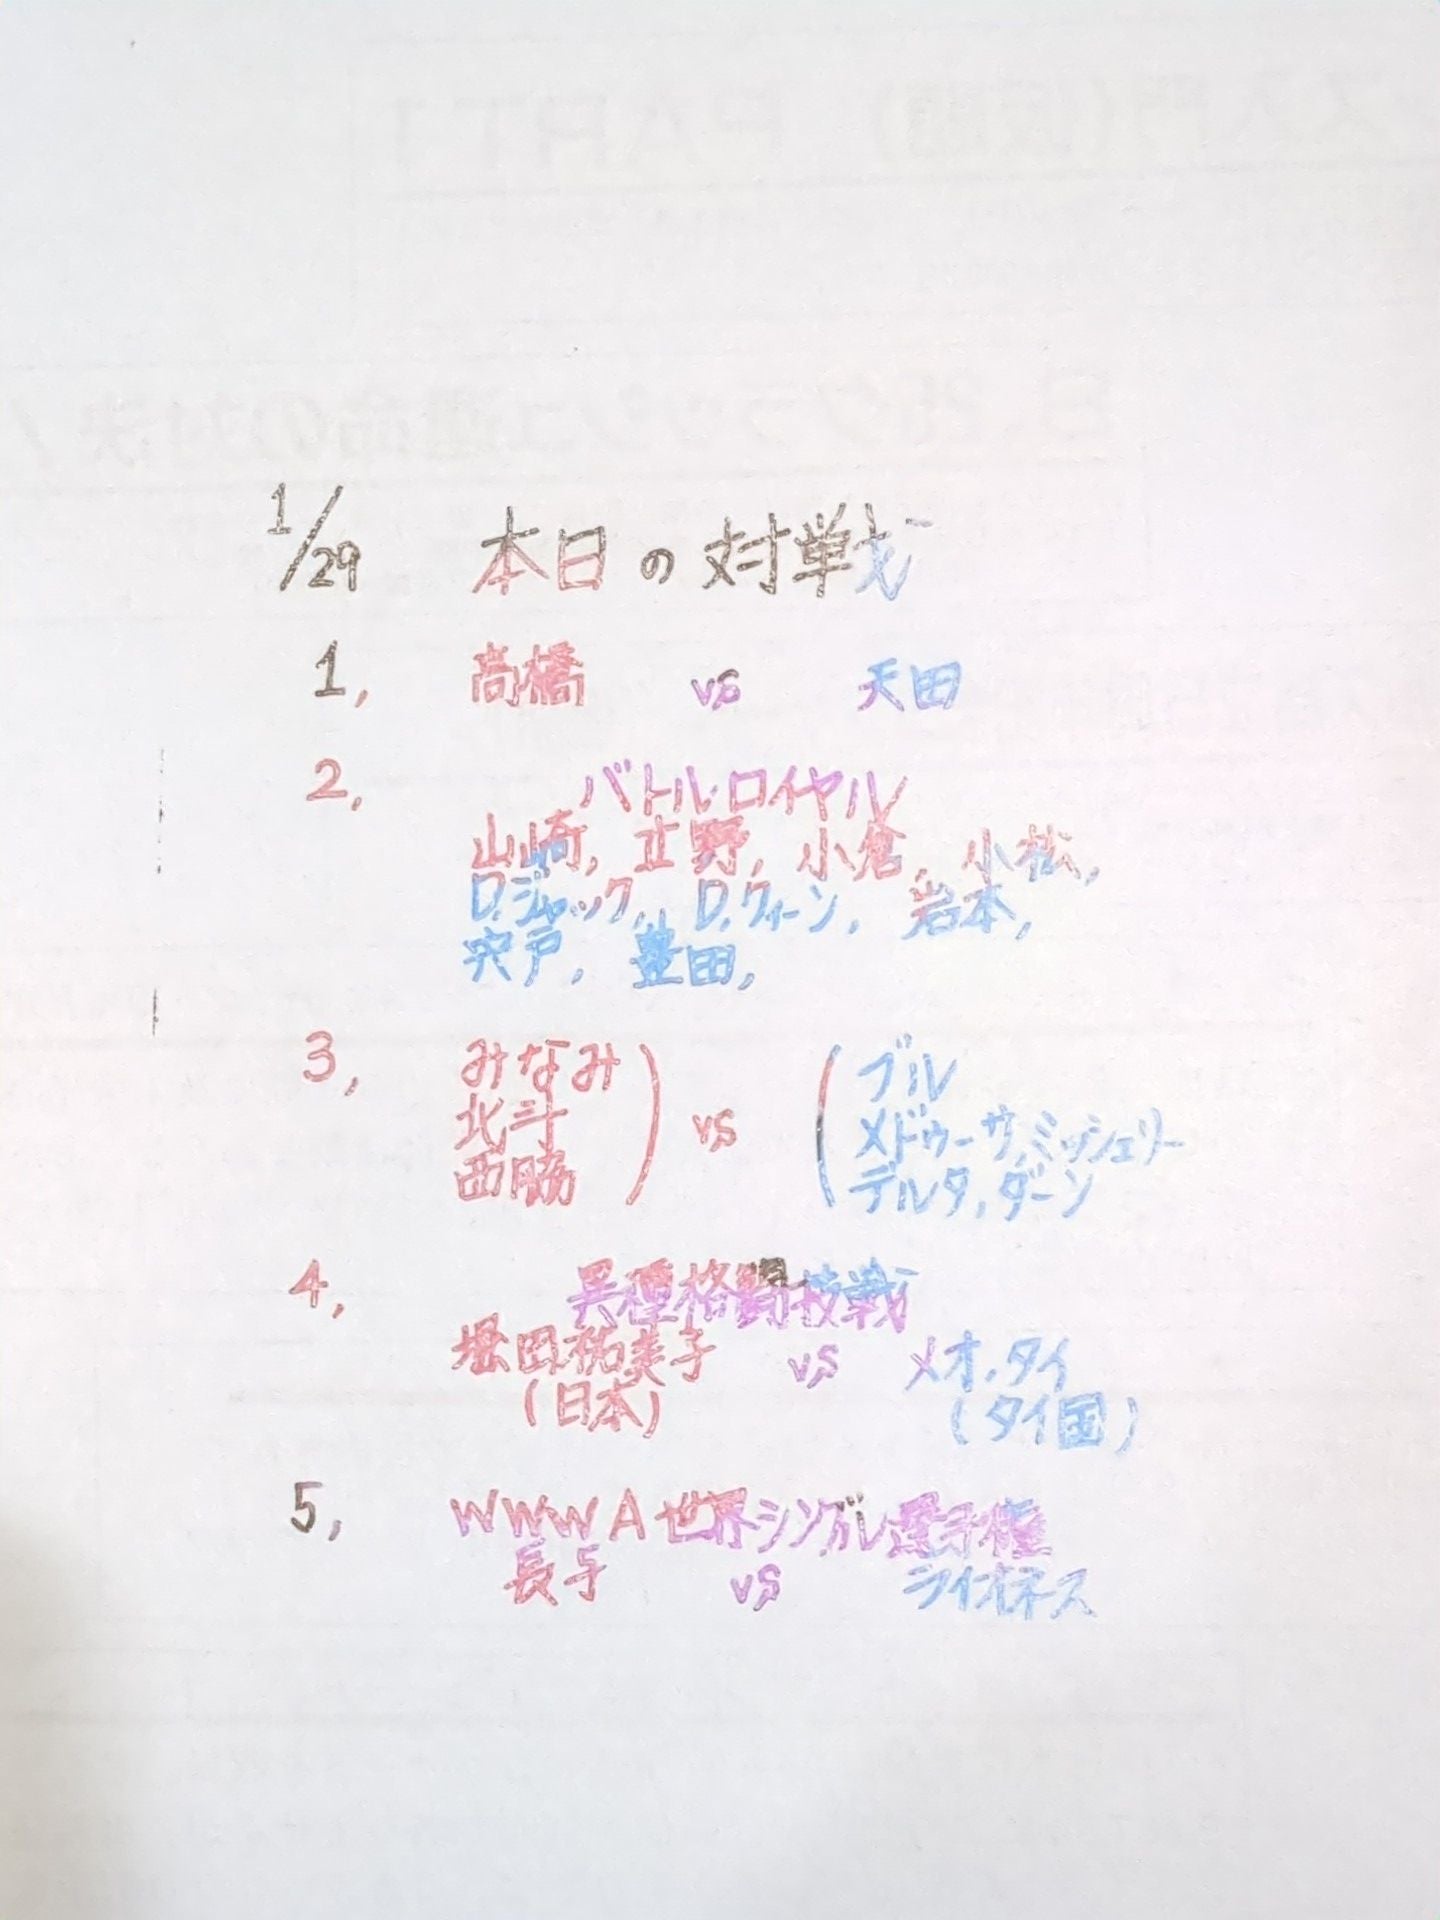 1/29 本日の対戦
1, 高橋 vs 天田
2, バトルロイヤル
山崎, 立野, 小倉, 小松,
D.ジャック, D.クィーン, 岩本,
宍戸, 豊田,
3, みなみ
北斗
西脇
vs
ブル
メドゥーサ,ミッシェリー
デルタ,ダーン
4, 異種格闘技戦
堀田祐美子 vs メオ.タイ
(日本) (タイ国)
5, WWWA世界シングル選手権
長与 vs ライオネス